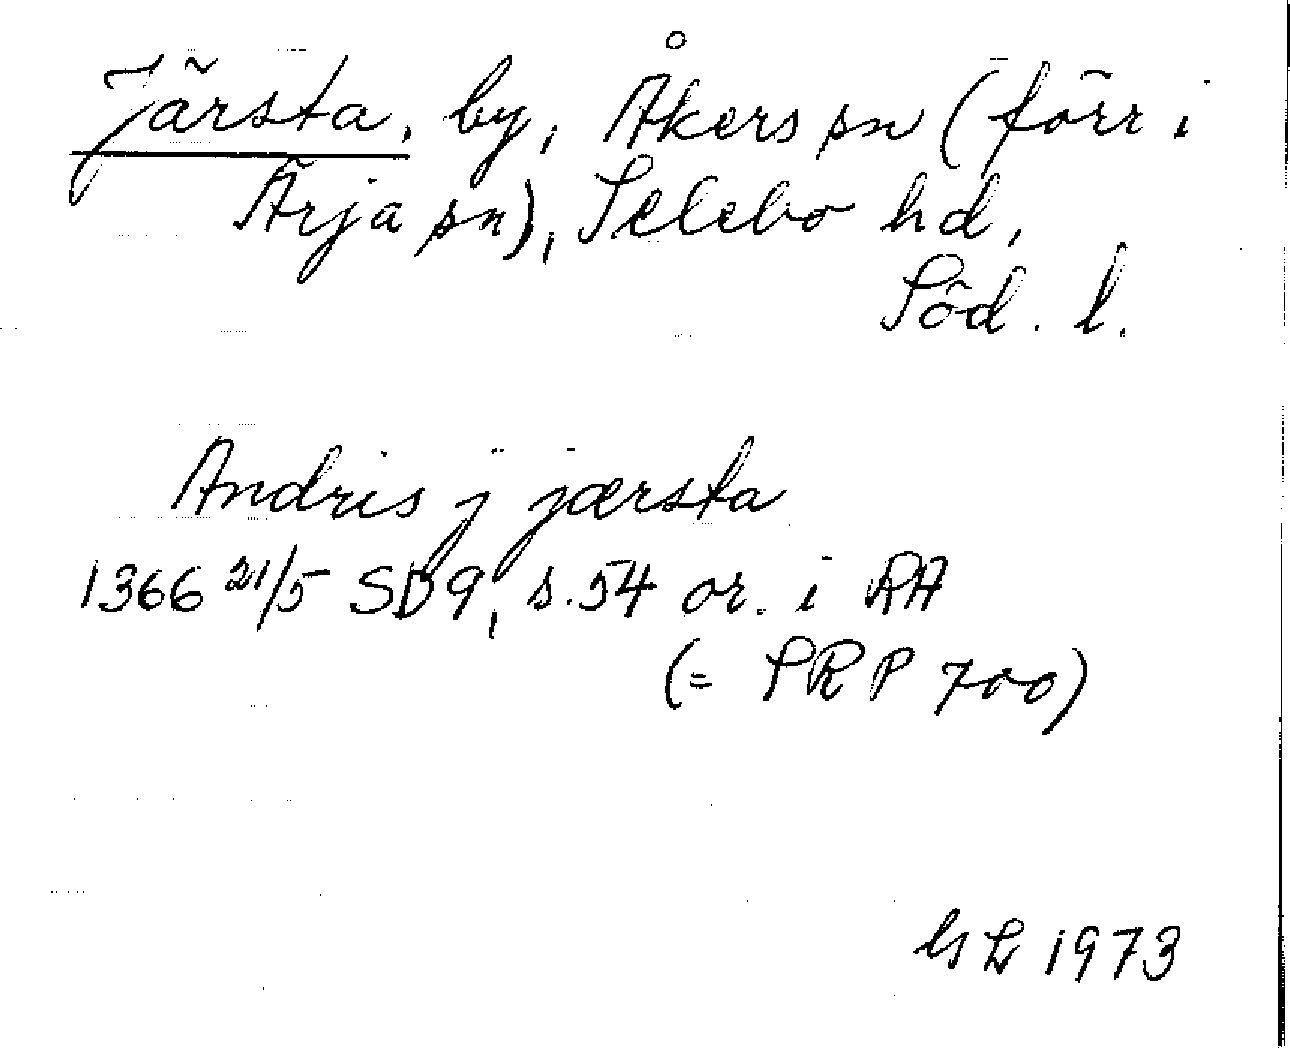 Järsta, by, Åkers sn (förr i
Ärja sn), Selebo hd,
Söd. l.
Andris j jærsta
1366 21/5 SD 9, s. 54 or. i RA
(= SRP 700)
GL 1973